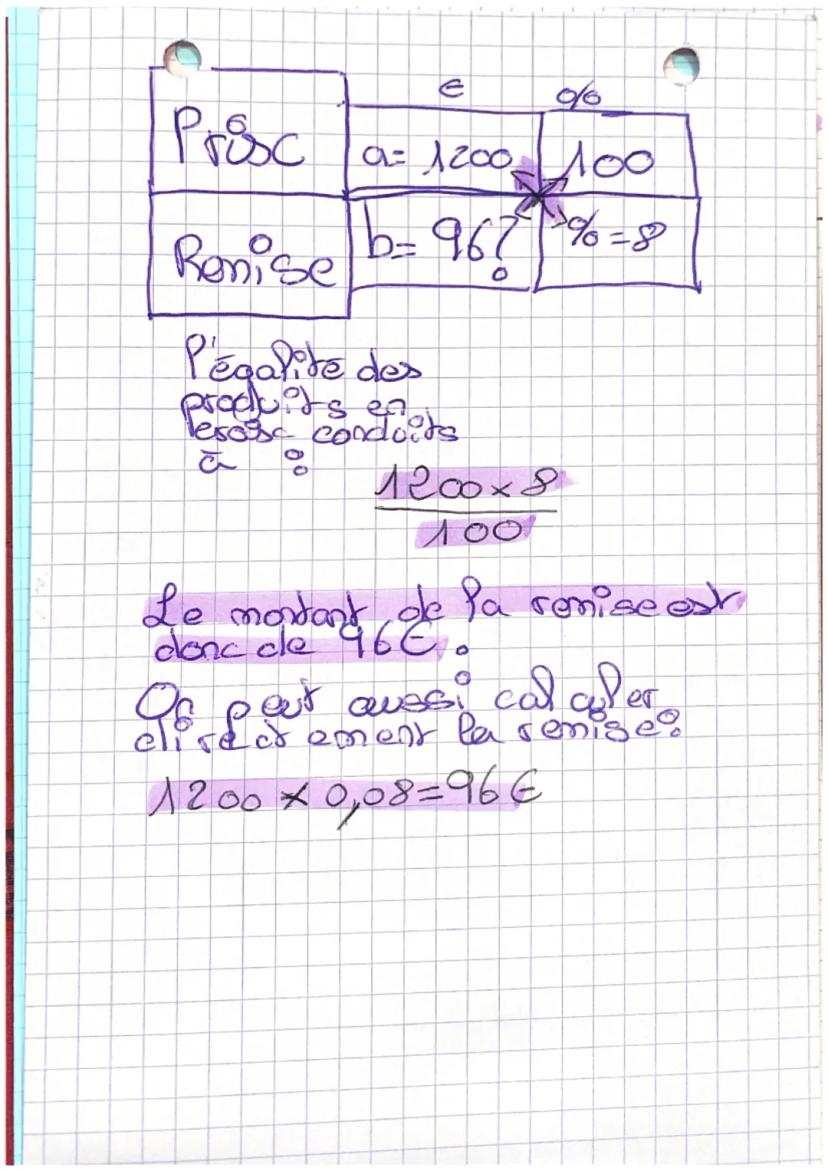 € %
Prix a= 1200 100
Remise b= 96? % = 8
l'égalité des
produits en
croix conduits
à :
1200 x 8
100
Le montant de la remise est
donc de 96€.
On peut aussi calculer
directement la remise:
1200 x 0,08=96€